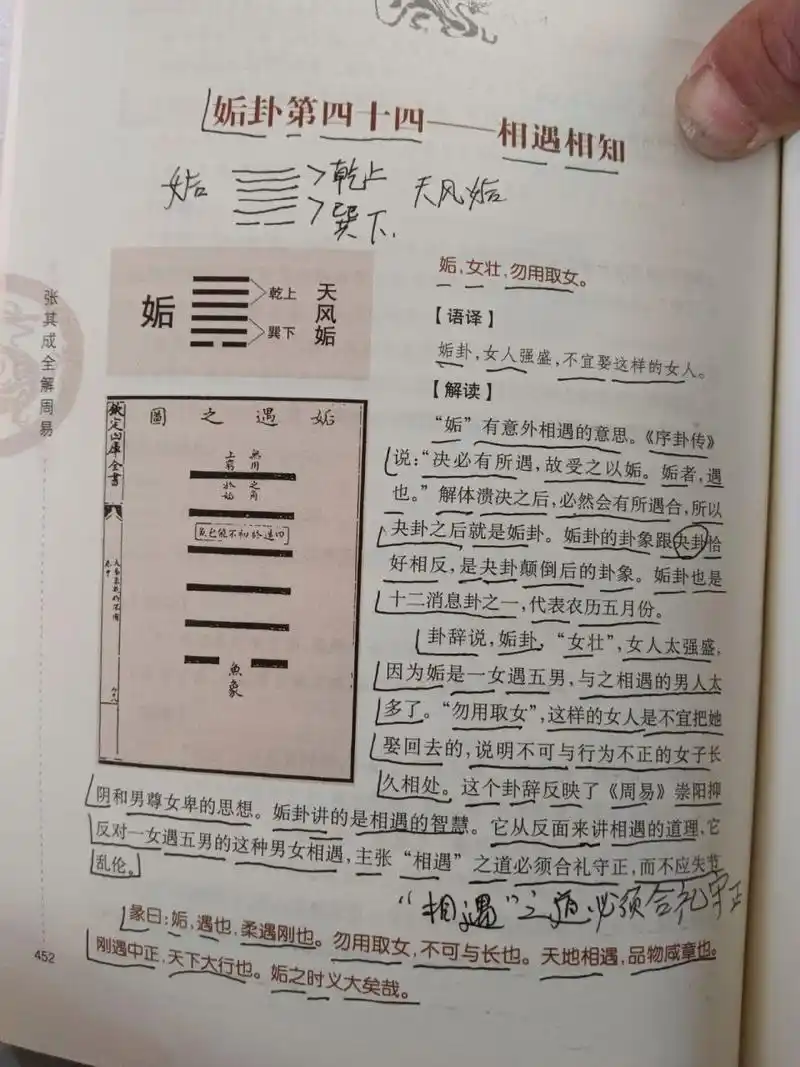 姤卦第四十四——相遇相知
姤 乾上 天风姤
巽下.
姤
乾上
巽下
天风姤
姤，女壮，勿用取女。
【语译】
姤卦，女人强盛，不宜娶这样的女人。
【解读】
“姤”有意外相遇的意思。《序卦传》
说：“决必有所遇，故受之以姤。姤者，遇
也。”解体溃决之后，必然会有所遇合，所以
夬卦之后就是姤卦。姤卦的卦象跟夬卦恰
好相反，是夬卦颠倒后的卦象。姤卦也是
十二消息卦之一，代表农历五月份。
卦辞说，姤卦，“女壮”，女人太强盛，
因为姤是一女遇五男，与之相遇的男人太
多了。“勿用取女”，这样的女人是不宜把她
娶回去的，说明不可与行为不正的女子长
久相处。这个卦辞反映了《周易》崇阳抑
阴和男尊女卑的思想。姤卦讲的是相遇的智慧。它从反面来讲相遇的道理，它
反对一女遇五男的这种男女相遇，主张“相遇”之道必须合礼守正，而不应失节
乱伦。
“相遇”之道必须合礼守正
彖曰：姤，遇也，柔遇刚也。勿用取女，不可与长也。天地相遇，品物咸章也。
刚遇中正，天下大行也。姤之时义大矣哉。
張其成全解周易
452
欽定四庫全書
圖之遇姤
魚象